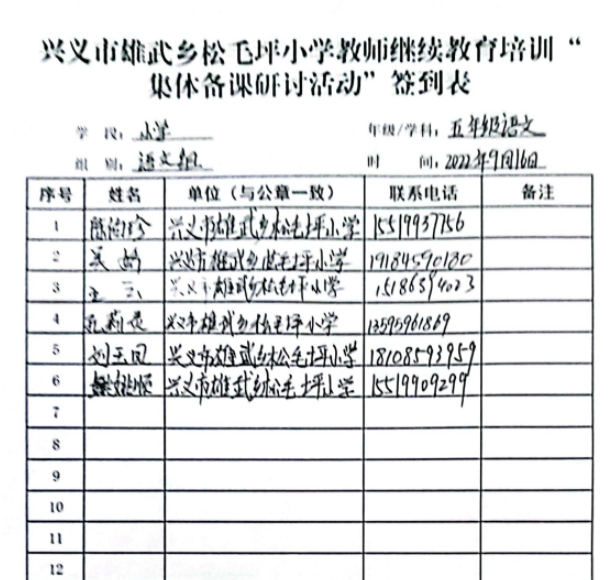 兴义市雄武乡松毛坪小学教师继续教育培训“
集体备课研讨活动”签到表
学 段：小学 年级/学科：五年级语文
组 别：语文组 时 间：2022年9月16日
序号 姓名 单位（与公章一致） 联系电话 备注
1 兴义市雄武乡松毛坪小学 15519937756
2 吴 兴义市雄武乡松毛坪小学 19184590180
3 王 兴义市雄武乡松毛坪小学 15186594023
4 孔莉 兴义市雄武乡松毛坪小学 13595961869
5 刘玉凤 兴义市雄武乡松毛坪小学 18108593959
6 兴义市雄武乡松毛坪小学 15519909299
7
8
9
10
11
12